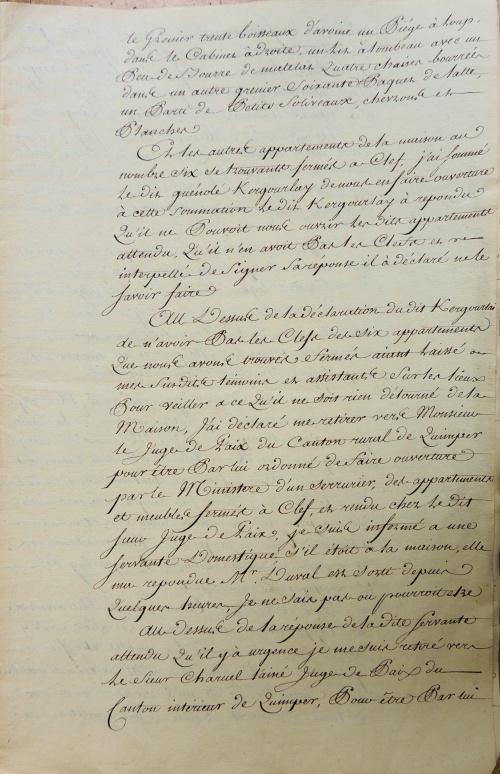 le Grenier trente boisseaux d'avoine un Piége à Loup.
dans le Cabinet à droite, un Lit à tombeau avec un
Peu de Bourre de matelas quatre chaises bourrées
dans un autre grenier Soixante Paques de Latte,
un Parti de Petits Soliveaux, chevrons et
Planches
Et les autres appartements de la maison au
nombre Six se trouvants fermés a Clef, j'ai sommé
Le dit guénolé Kergourlay de nous en faire ouverture
à cette sommation le dit Kergourlay à repondu
Qu'il ne Pouvoit nous ouvrir les dits appartements
attendu Qu'il n'en avoit Pas les Clefs et re
interpellé de Signer Sa réponse il à déclaré ne le
Savoir faire
Au Dessus de la déclaration du dit Kergourlai
de n'avoir Pas les Clefs des six appartements
Que nous avons trouvés fermés aiant laissé
mes Susdits témoins et assistants Sur les Lieux
Pour veiller a ce Qu'il ne Soit rien détourné de la
Maison, J'ai déclaré me retirer vers Monsieur
le Juge de Paix du Canton rural de Quimper
pour être Par lui ordonné de faire ouverture
par le Ministere d'un serrurier, des appartements
et meubles fermés à Clef, et rendu chez le dit
Sieur Juge de Paix, je suis informé a une
Servante Domestique S'il étoit a la maison, elle
ma repondue Mr. Duval est Sorti depuis
Quelques heures, Je ne sais pas ou pourroit etre
Au dessus de la réponse de la dite Servante
attendu Qu'il y a urgence je me suis retiré vers
Le Sieur Charuel L'ainé Juge de Paix du
Canton interieur de Quimper, Pour être Par lui